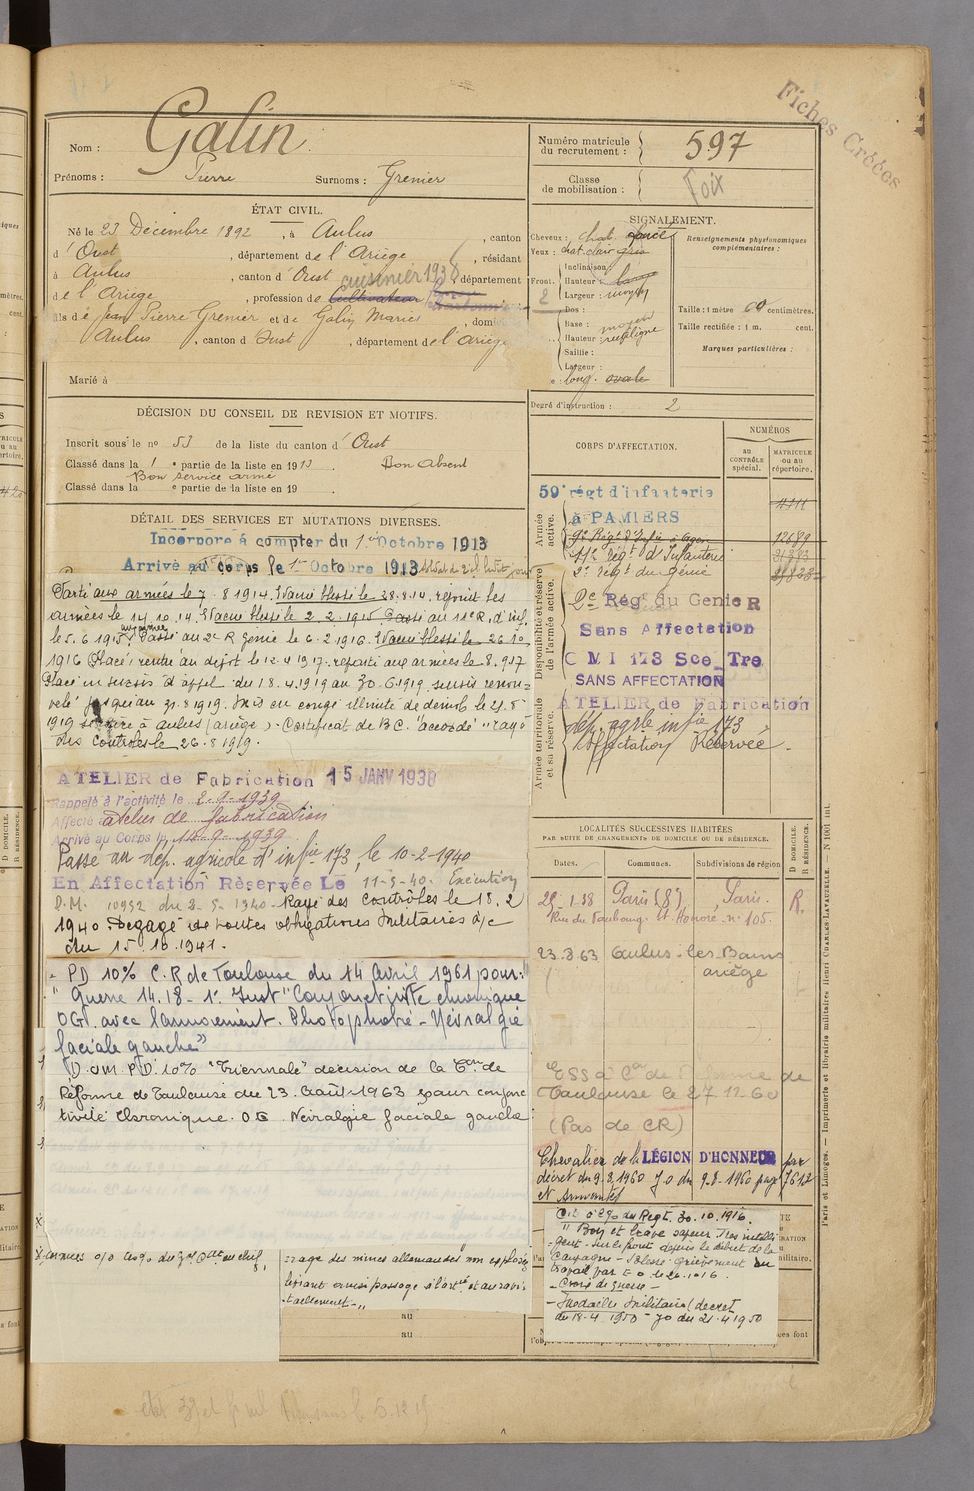 Fiches Créées
Nom : Galin
Prénoms : Pierre Surnoms : Grenier
Numéro matricule du recrutement : 597
Classe de mobilisation :
Foix
ÉTAT CIVIL.
Né le 23 Décembre 1892, à Aulus, canton
d'Oust, département de l'Ariège, résidant
à Aulus, canton d'Oust, département
cuisinier 1938
de l'Ariège, profession de Cultivateur
fils de Jean Pierre Grenier et de Galin Marie, domi
Aulus, canton d'Oust, département de l'Ariège
Marié à
SIGNALEMENT.
Cheveux : chat. foncé
Yeux : chat. clair gris
Inclinaison :
Front. Hauteur :
Largeur : moyen
Dos :
Base : moyen
Hauteur : rectiligne
Saillie :
Largeur :
long. ovale
Renseignements physionomiques complémentaires :
Taille : 1 mètre 60 centimètres.
Taille rectifiée : 1 m. cent.
Marques particulières :
Degré d'instruction : 2
DÉCISION DU CONSEIL DE REVISION ET MOTIFS.
Inscrit sous le n° 53 de la liste du canton d'Oust
Classé dans la 1e partie de la liste en 1913 Bon Absent
Bon service armé
Classé dans la e partie de la liste en 19 .
DÉTAIL DES SERVICES ET MUTATIONS DIVERSES.
Incorporé à compter du 1er Octobre 1913
Arrivé au Corps le 1er Octobre 1913
Parti aux armées le 7.8.1914. Evacué blessé le 28.8.14. rejoint les
armées le 14.10.14. Evacué blessé le 2.2.1915 Passé au 11e R. d'inf.
le 5.6 1915. Passé au 2e R Génie le 6.2.1916. Evacué blessé le 26.10
1916 Placé rentré au dépôt le 12.4.1917. reparti aux armées le 8.9.17
Placé en sursis d'appel du 18.4.1919 au 30.6.1919. sursis renou-
velé jusqu'au 31.8.1919. Mis en congé illimité de démob. le 21.8
1919 se retire à Aulus (ariège). Certificat de B C. "accordé" "rayé
des contrôles le 26.8.1919.
ATELIER de Fabrication 15 JANV 1938
Rappelé à l'activité le 2-9-1939
Affecté atelier de fabrication
Arrivé au Corps le 14-9-1939
Passé au dép. agricole d'infie 173, le 10-2-1940
En Affectation Réservée Le 11-3-40. Exécution
D.M. 10932 du 3-5-1940. Rayé des contrôles le 18.2
1940 Dégagé de toutes obligations militaires d/c
du 15.10.1941.
PD 10% C.R de Toulouse du 14 Avril 1961 pour :
" Guerre 14.18 - 1° Inst "Conjonctivite chronique
OG. avec larmoiement. Photophobie - Névralgie
faciale gauche"
P.D. 10% "Triennale" décision de la Con de
Réforme de Toulouse du 23 Août 1963 pour conjonc
tivite Chronique. O G Nevralgie faciale gauche
rage des mines allemandes non explosées
taillement."
au
au
CORPS D'AFFECTATION.
NUMÉROS
AU CONTRÔLE spécial.
MATRICULE ou au répertoire.
Armée active.
Disponibilité et réserve de l'armée active.
Armée territoriale et sa réserve.
59e régt d'infanterie
à PAMIERS
9e Régt d'Infie à Agen 12689
11e régt d'Infanterie
2e régt du génie
2e Régt du Génie R
Sans Affectation
C M I 173 Sce Tre
SANS AFFECTATION
ATELIER DE Fabrication
dép. agrle infie 173
Affectation Réservée.
LOCALITÉS SUCCESSIVES HABITÉES
PAR SUITE DE CHANGEMENTS DE DOMICILE OU DE RÉSIDENCE.
Dates. Communes. Subdivisions de région D DOMICILE. R RÉSIDENCE.
29-1-38 Paris (8e) Paris. R.
Rue du Faubourg St Honoré n° 105.
23.8.63 Aulus-les-Bains
ariège
Toulouse le 27.12.60
(Pas de CR)
Chevalier de la LÉGION D'HONNEUR par
décret du 9.8.1960 J O du 9-8-1960 page 7612
Cité o/ 290 du Régt. 30.10.1916.
" Bon et brave sapeur très intelli
-gent - sur le front depuis le début de la
Campagne - Blessé grièvement au
travail par E O le 26.10.16
- Croix de guerre -
- Médaille Militaire (décret
du 18-4-1950 - JO du 21.4.1950
Paris et Limoges. — Imprimerie et librairie militaires Henri CHARLES-LAVAUZELLE. — N 1001 int.